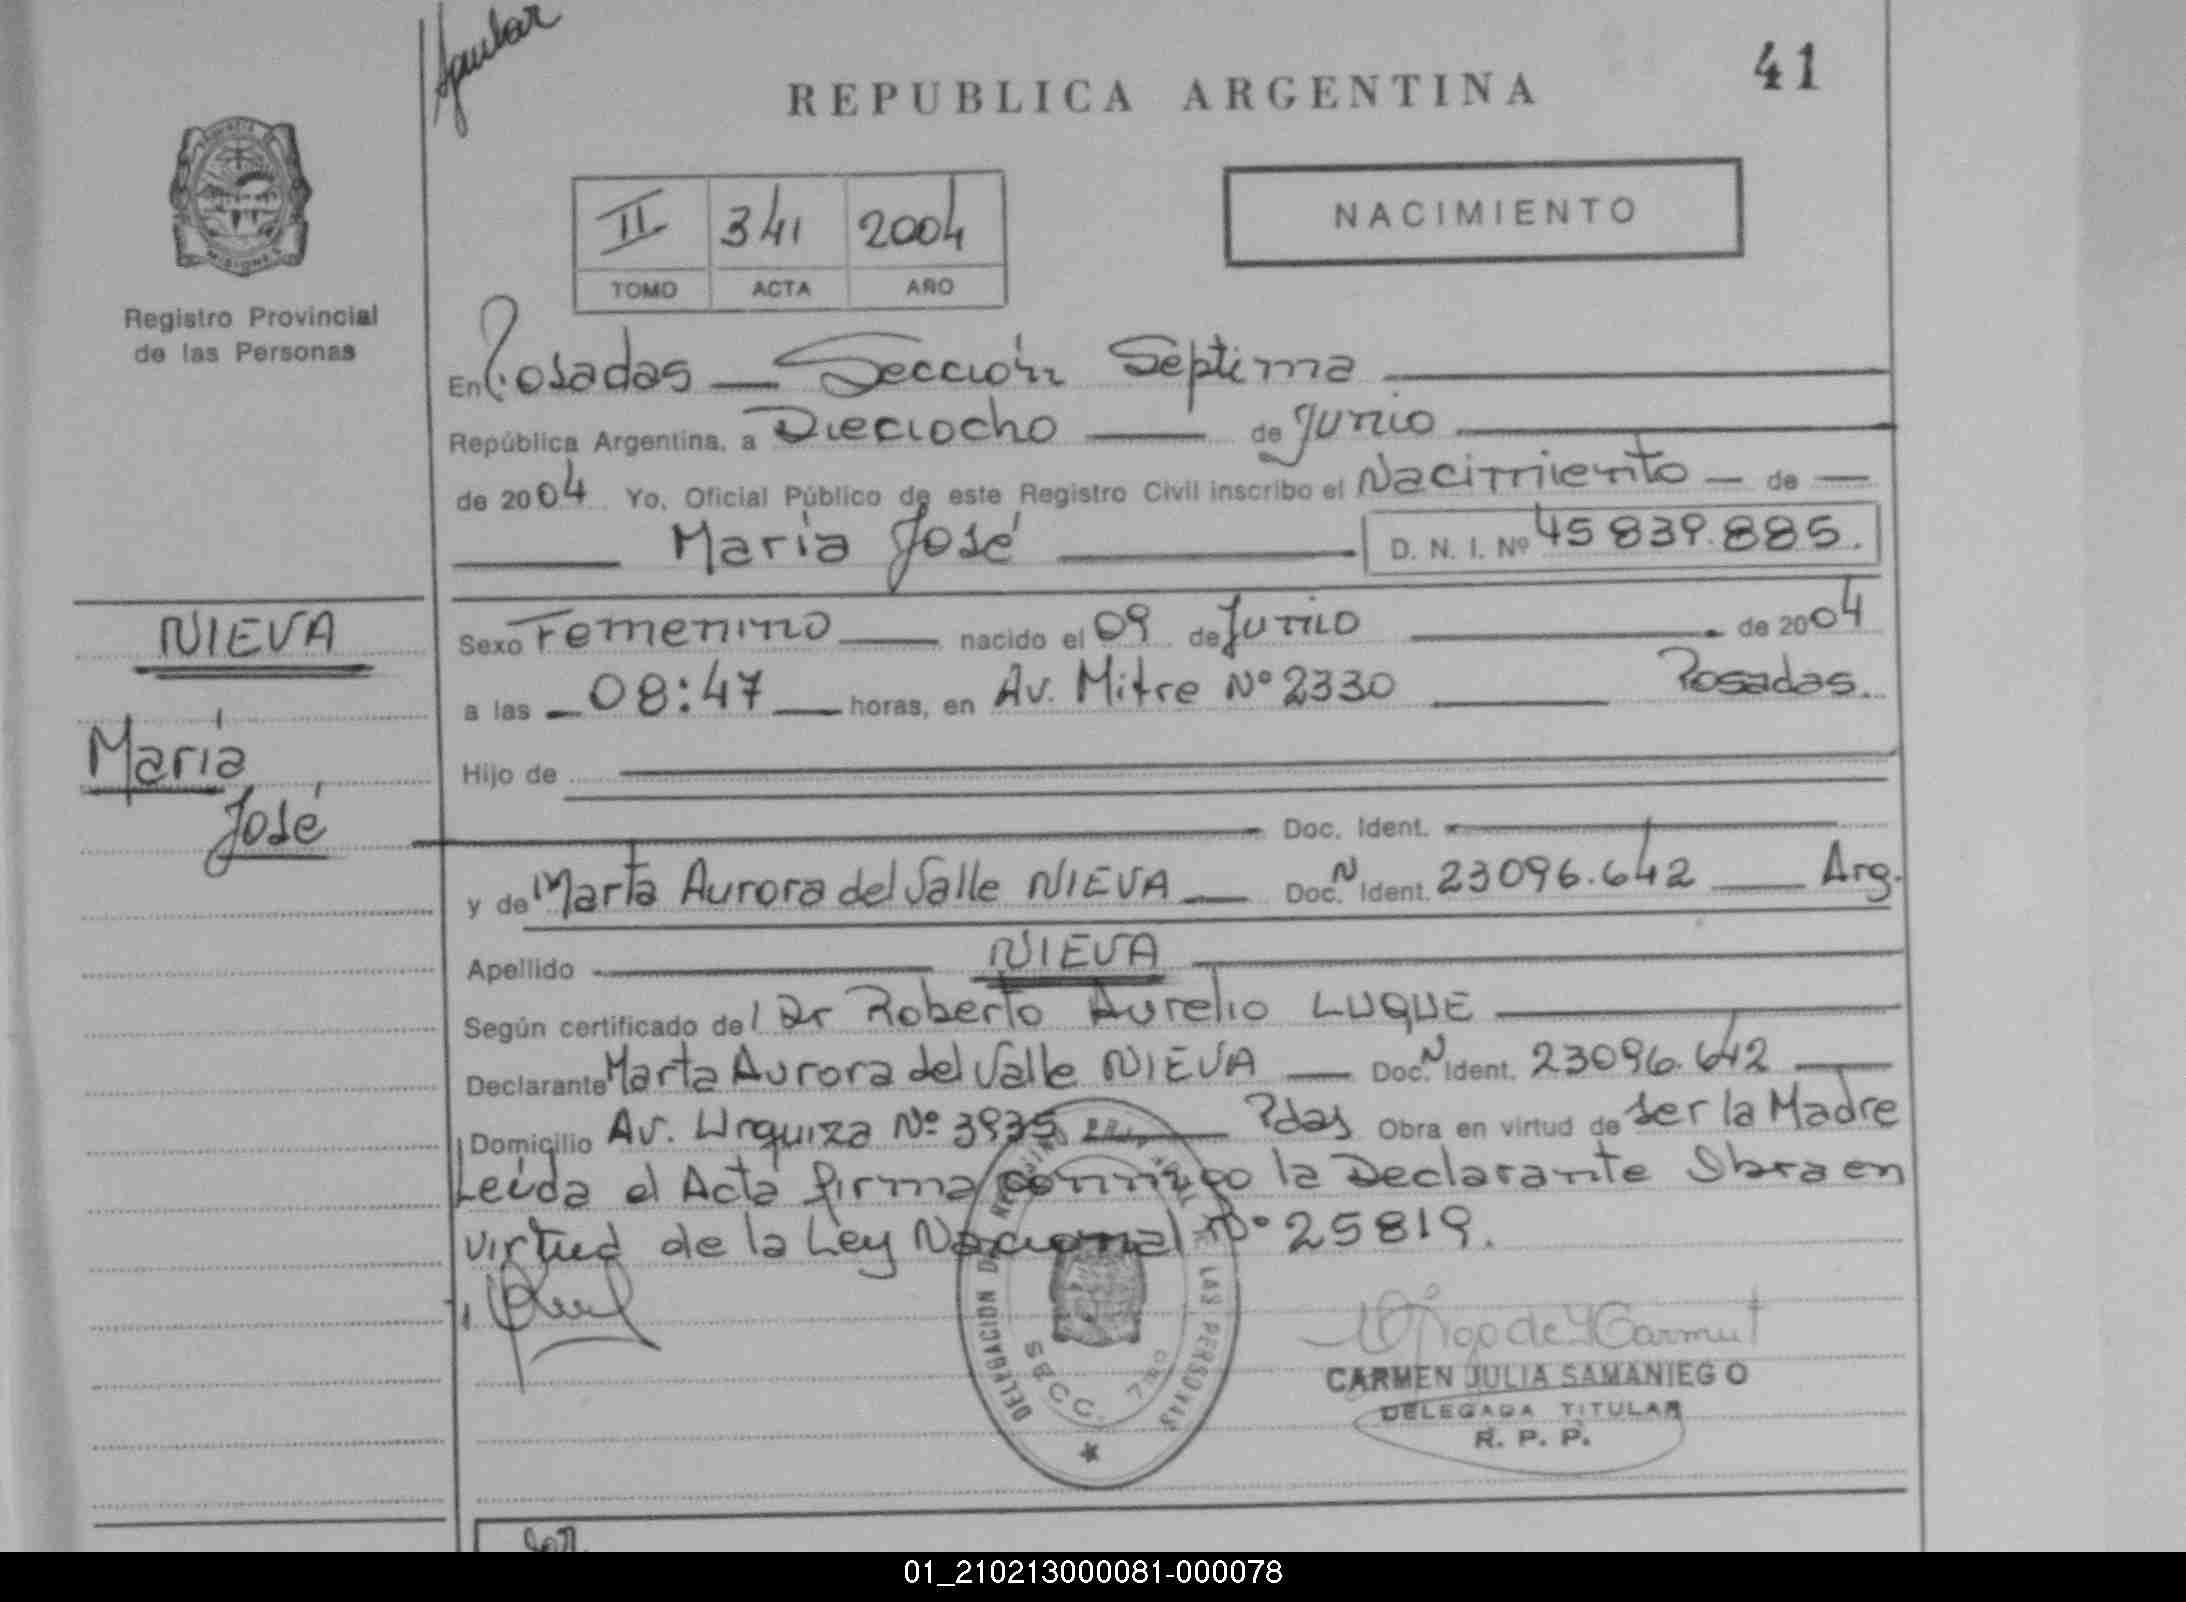 Aguilar
REPUBLICA ARGENTINA
41
Registro Provincial
de las Personas
II 341 2004
TOMO ACTA AÑO
NACIMIENTO
En Posadas — Sección Séptima
República Argentina, a Dieciocho — de Junio
de 2004 Yo, Oficial Público de este Registro Civil inscribo el Nacimiento — de —
María José D. N. I. Nº 45839.885.
NIEVA
María
José
Sexo Femenino — nacido el 09 de Junio — de 2004
a las — 08:47 — horas, en Av. Mitre Nº 2330 — Posadas.
Hijo de
Doc. Ident.
y de Marta Aurora del Valle NIEVA — Doc. N Ident. 23096.642 — Arg.
Apellido NIEVA
Según certificado del Dr Roberto Aurelio LUQUE
Declarante Marta Aurora del Valle NIEVA — Doc. N Ident. 23096.642
Domicilio Av. Urquiza Nº 3935 — Pdas Obra en virtud de ser la Madre
Leída el Acta firma conmigo la Declarante Obra en
virtud de la Ley Nacional Nº 25819.
DELEGACION DEL REGISTRO PROVINCIAL DE LAS PERSONAS
SECC. 7ma
CARMEN JULIA SAMANIEGO
DELEGADA TITULAR
R. P. P.
01_210213000081-000078